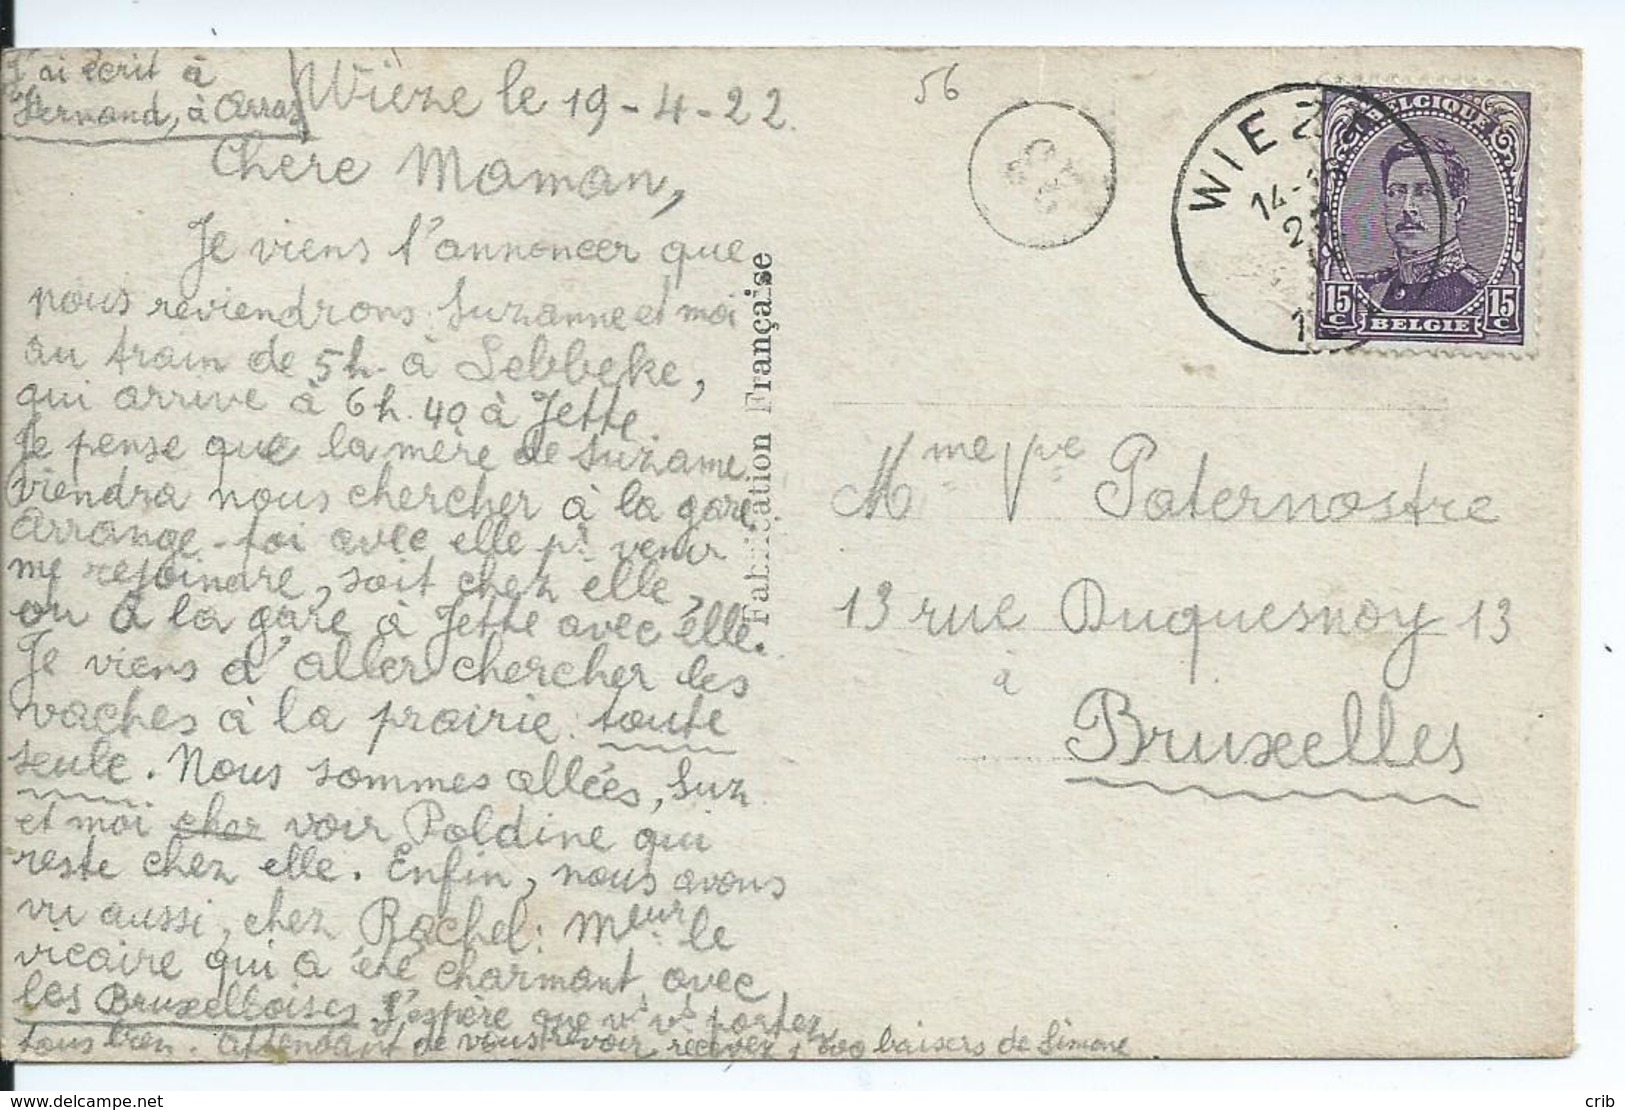 J'ai écrit à
Fernand, à Arras
Wièze le 19-4-22.
Chère Maman,
Je viens t'annoncer que
nous reviendrons Suzanne et moi
au train de 5h. à Lebbeke,
qui arrive à 6h.40 à Jette.
Je pense que la mère de Suzanne
viendra nous chercher à la gare.
Arrange-toi avec elle pr. venir
me rejoindre, soit chez elle,
ou à la gare à Jette avec elle.
Je viens d'aller chercher les
vaches à la prairie toute
seule. Nous sommes allées, Suz
et moi chez voir Poldine qui
reste chez elle. Enfin, nous avons
vu aussi, chez Rachel: Meur. le
vicaire qui a été charmant avec
les Bruxelloises. J'espère que vs. vs. portez
tous bien. Attendant de vous revoir, recevez 1000 baisers de Simone
Fabrication Française
56
WIEZE
14-
2
1
BELGIQUE
15 C
BELGIE
15 C
Mme Vve Paternostre
13 rue Duquesnoy 13
à
Bruxelles
crib